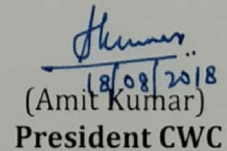 18/08/2018
(Amit Kumar)
President CWC